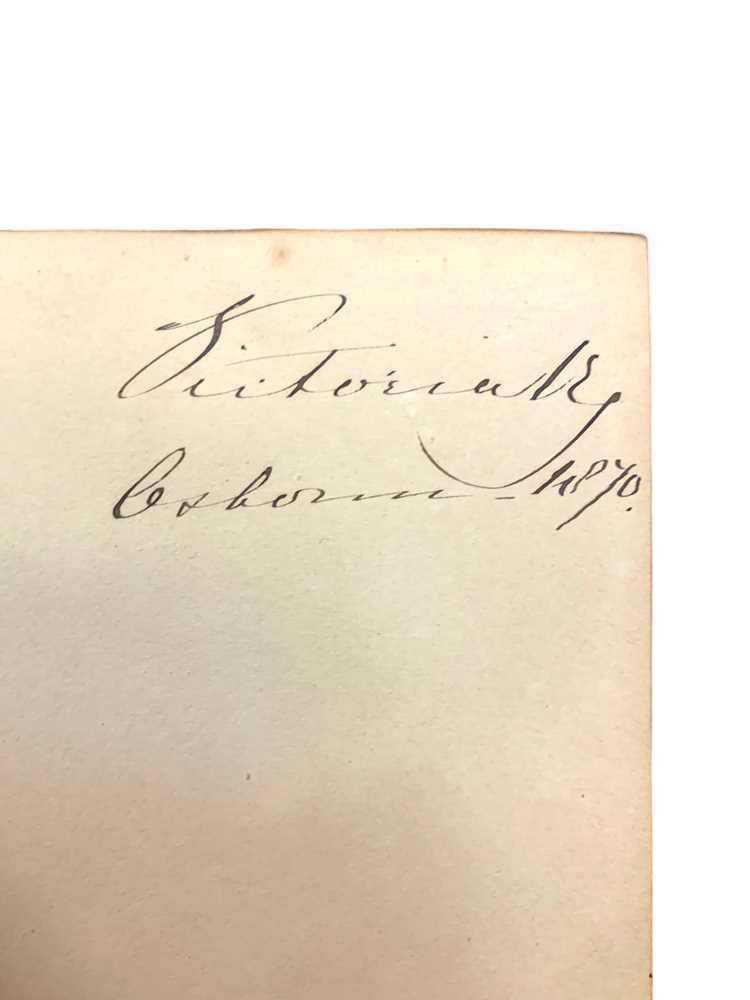 Victoria R
Osborne - 1870.